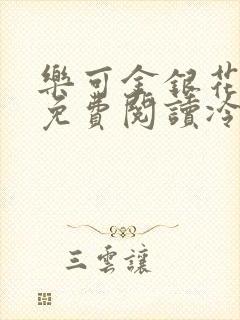 樂可金銀花
免費閱讀冷
三雲讓